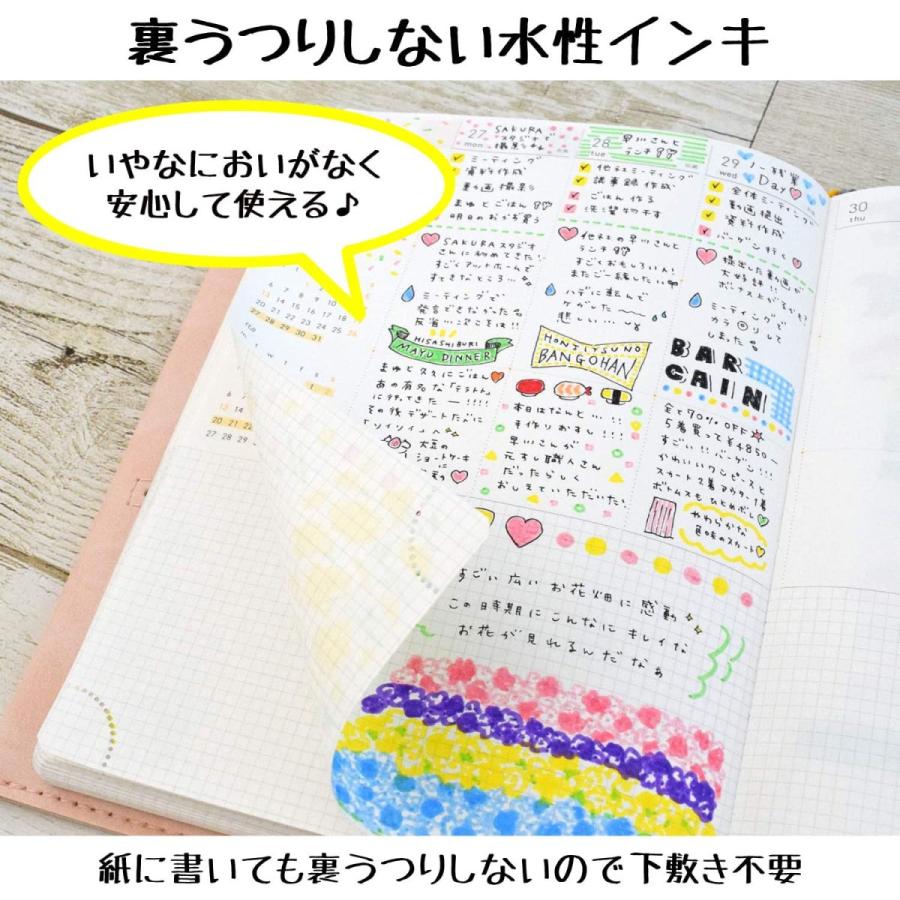 裏うつりしない水性インキ
いやなにおいがなく
安心して使える♪
27 mon
SAKURA
スタジオで
撮影デー
ミーティング
資料作成
動画撮影
まゆとごはん
明日のおかず買う
SAKURAスタジオ
さんに初めてきた!
すごくアットホームで
すてきなところ…
ミーティングで
発言できなかった
HISASHIBURI
MAYU DINNER
まゆと久々にごはん
あの有名な「テラトム」
に行ってきたー!!!!
その後デザートたべに
大豆の
ショートケーキ
28 tue
早川さんと
ランチ
他社ミーティング
議事録作成
ごはん作る
洗濯物干す
他社の早川さんと
ランチ
すごくおもしろい人!
またご一緒したい
ハデに転んで
ケガした…
悲しい…
HONJITSU NO
BANGOHAN
本日はなんと…
手作りおすし!!!
早川さんが
元すし職人さん
だったらしく
おしえていただいた。
29 wed
ノー残業
Day
全体ミーティング
動画提出
資料作成
バーゲン行く
提出した動画が
大好評!!
ミーティングで
しまった
BAR
GAIN
全て70% OFF
5着買って¥4850〜
すごい!!バーゲン!!!
かわいいワンピースと
スカート2着アウター1着
ボトムスもひとめぼれ
やわらかな
色味のスカート
30
thu
すごい広いお花畑に感動
この時期にこんなにキレイな
お花が見れるんだなぁ
紙に書いても裏うつりしないので下敷き不要